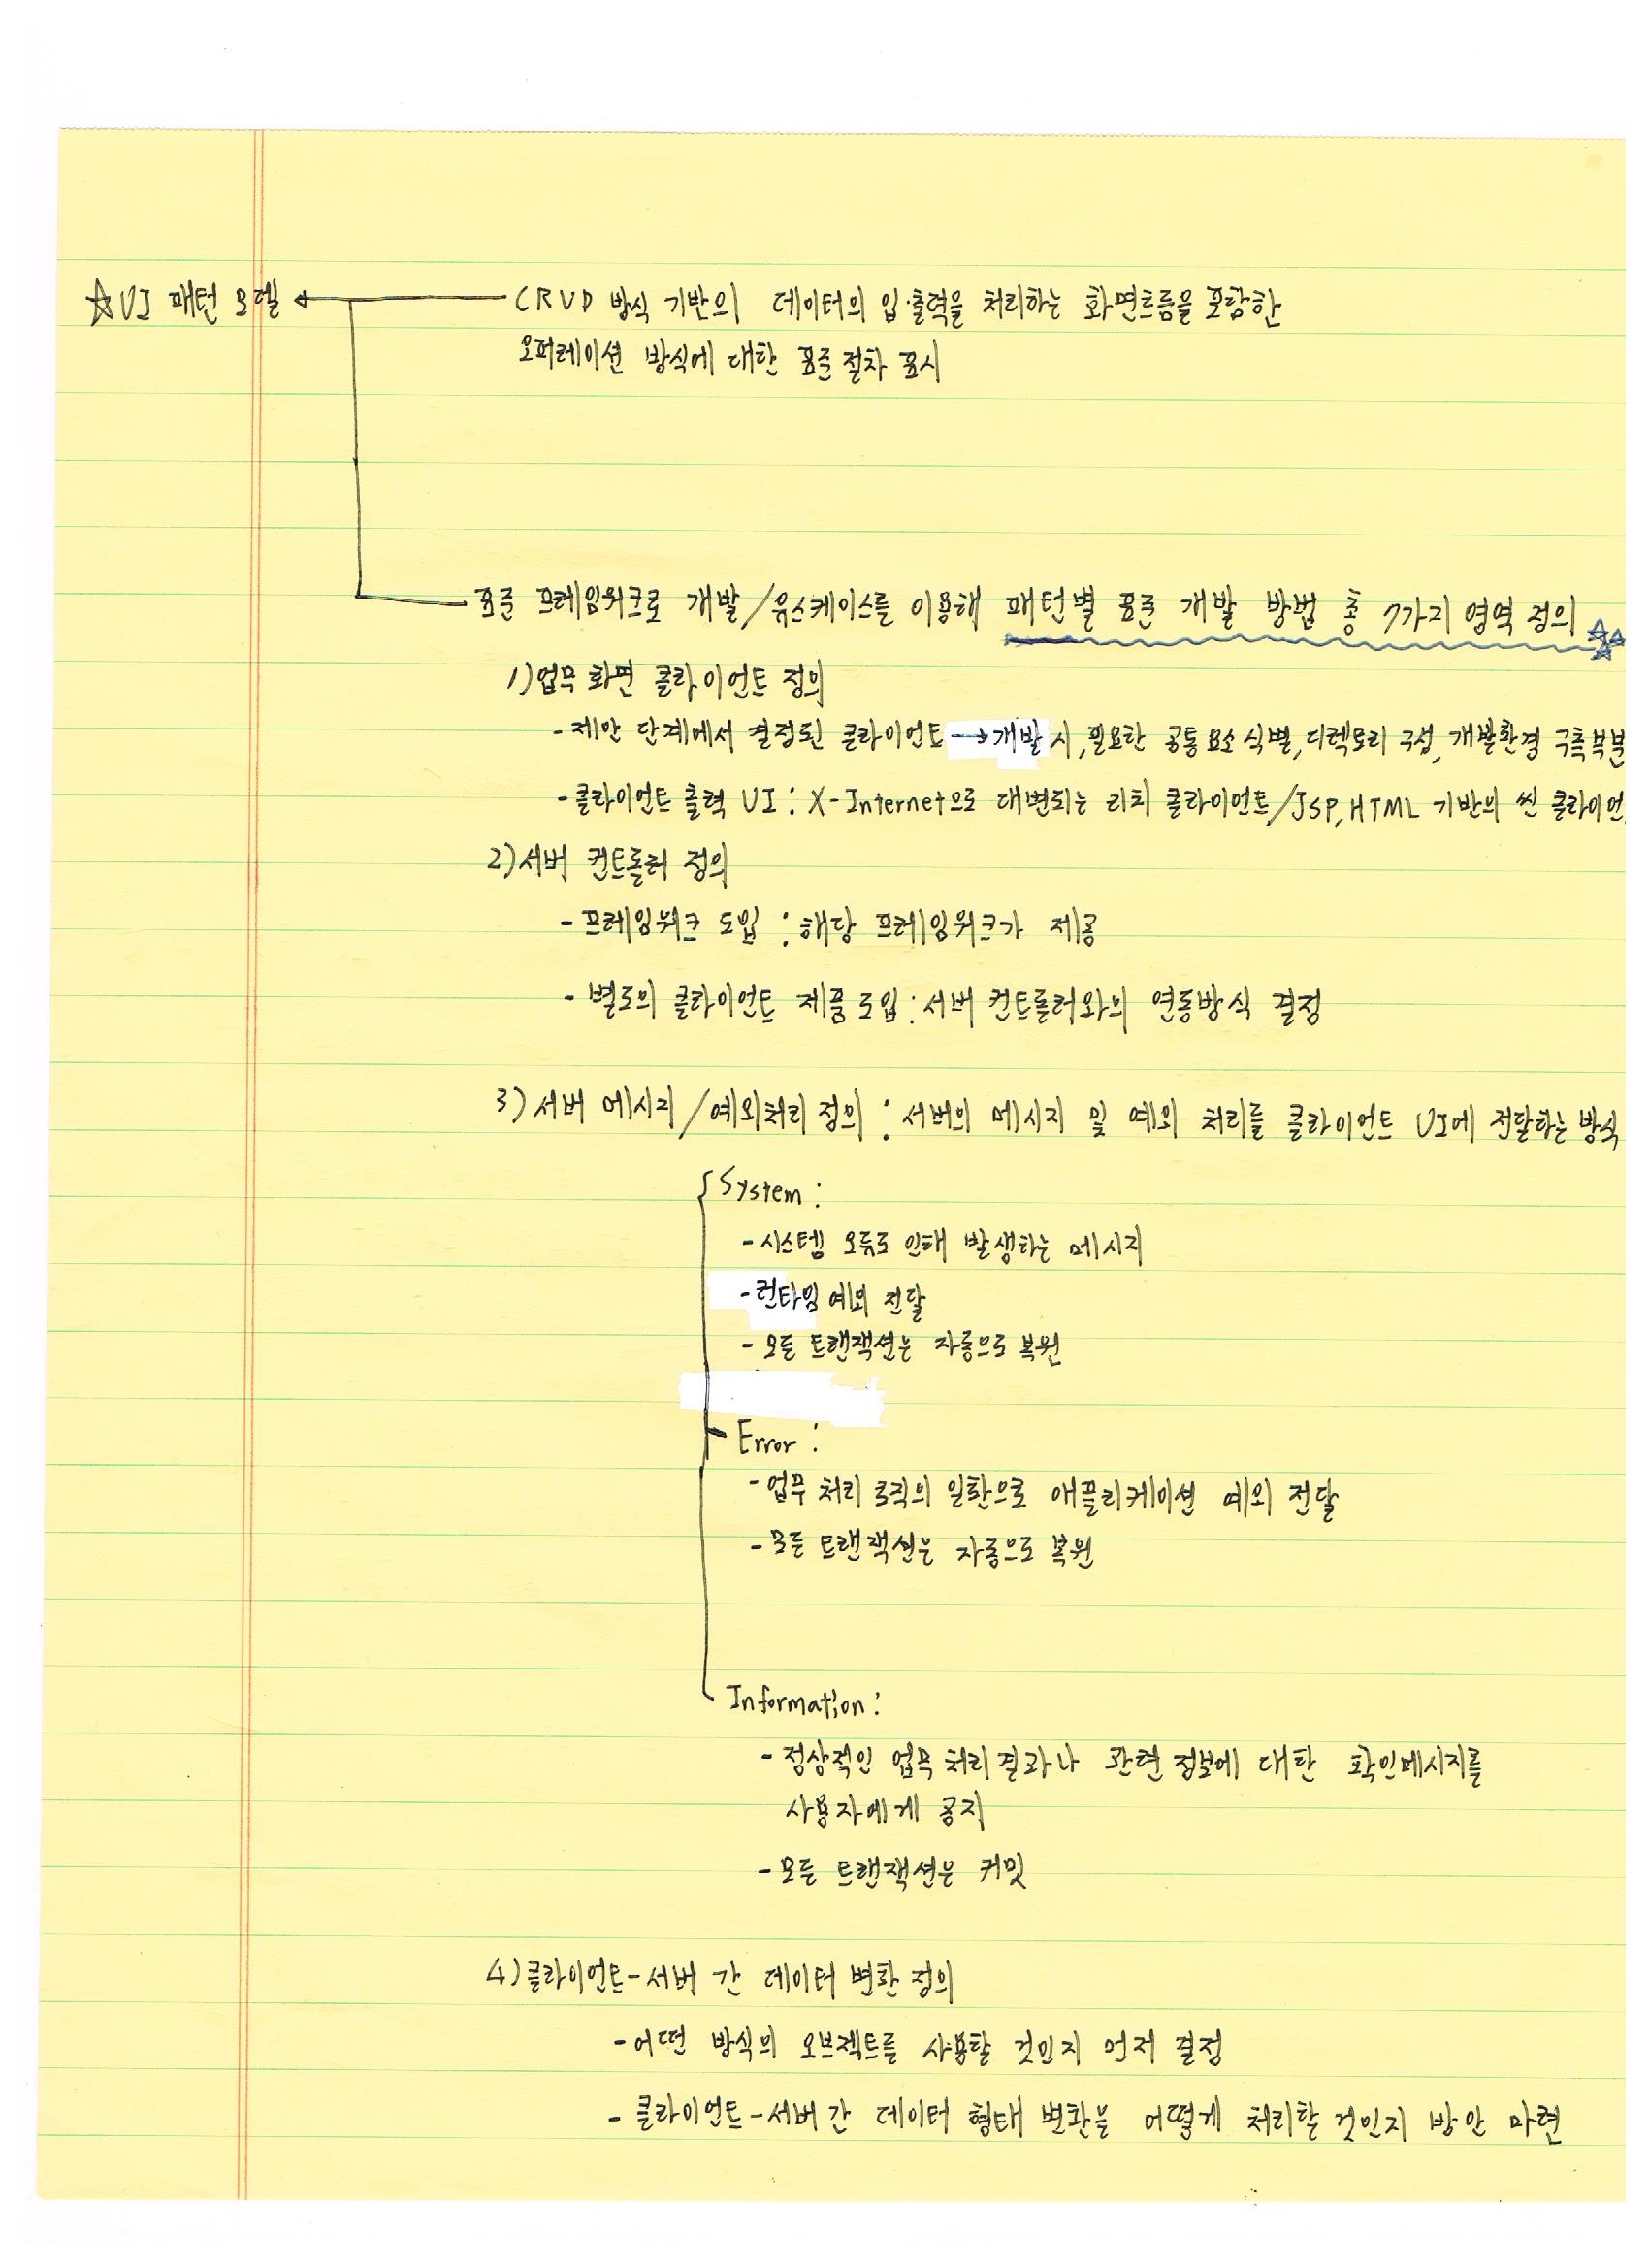 ☆UI 패턴 모델 ← CRUD 방식 기반의 데이터의 입·출력을 처리하는 화면흐름을 포함한
오퍼레이션 방식에 대한 표준 절차 표시
표준 프레임워크로 개발/유스케이스를 이용해 패턴별 표준 개발 방법 총 7가지 영역 정의 ☆☆☆
1)업무 화면 클라이언트 정의
- 제안 단계에서 결정된 클라이언트 → 개발 시, 필요한 공통 요소 식별, 디렉토리 구성, 개발환경 구축 부분
- 클라이언트 출력 UI : X-Internet으로 대변되는 리치 클라이언트/JSP, HTML 기반의 씬 클라이언
2)서버 컨트롤러 정의
- 프레임워크 도입 : 해당 프레임워크가 제공
- 별도의 클라이언트 제품 도입 : 서버 컨트롤러와의 연동방식 결정
3) 서버 메시지/예외처리 정의 : 서버의 메시지 및 예외 처리를 클라이언트 UI에 전달하는 방식
System :
- 시스템 오류로 인해 발생하는 메시지
- 런타임 예외 전달
- 모든 트랜잭션은 자동으로 복원
Error :
- 업무 처리 로직의 일환으로 애플리케이션 예외 전달
- 모든 트랜잭션은 자동으로 복원
Information :
- 정상적인 업무 처리결과나 관련 정보에 대한 확인메시지를
사용자에게 공지
- 모든 트랜잭션은 커밋
4)클라이언트-서버 간 데이터 변환 정의
- 어떤 방식의 오브젝트를 사용할 것인지 먼저 결정
- 클라이언트-서버 간 데이터 형태 변환을 어떻게 처리할 것인지 방안 마련